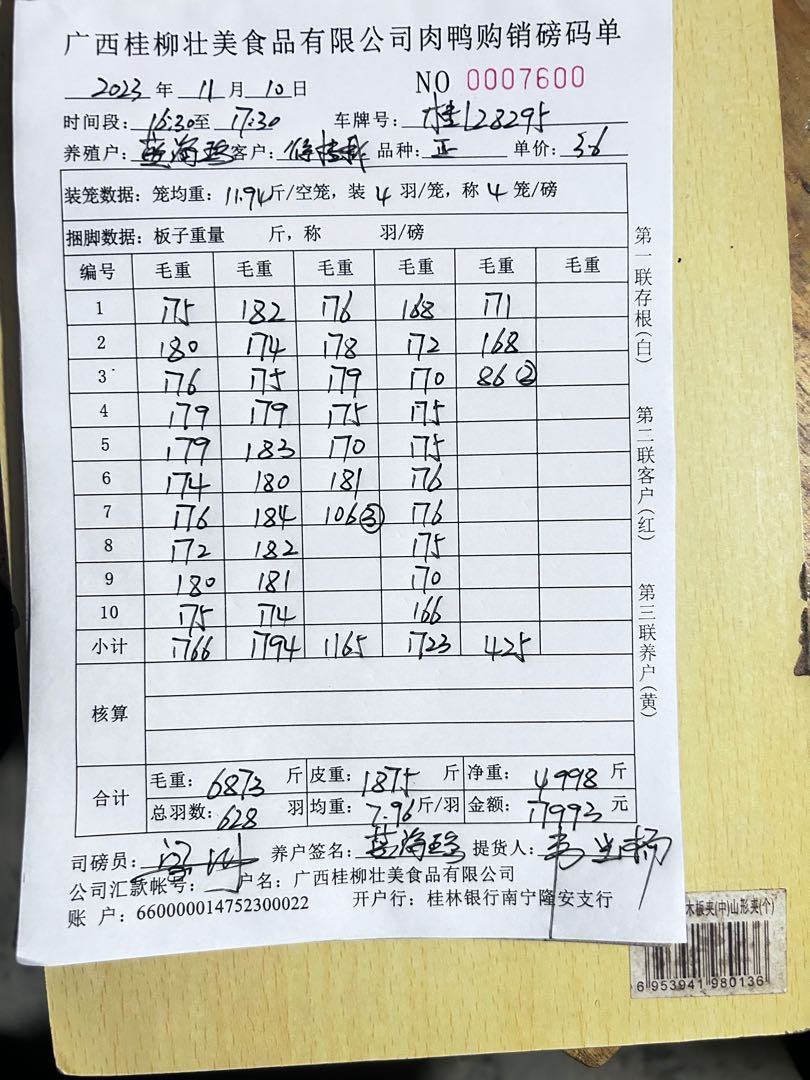 广西桂柳壮美食品有限公司肉鸭购销磅码单
2023 年 11 月 10 日 NO 0007600
时间段: 16:30 至 17:30 车牌号: 桂L28295
养殖户: 客户: 品种: 正 单价: 3.6
装笼数据: 笼均重: 11.94 斤/空笼, 装 4 羽/笼, 称 4 笼/磅
捆脚数据: 板子重量 斤, 称 羽/磅
编号 毛重 毛重 毛重 毛重 毛重 毛重
1 175 182 176 168 171
2 180 174 178 172 168
3 176 175 179 170 86②
4 179 179 175 175
5 179 183 170 175
6 174 180 181 176
7 176 184 106③ 176
8 172 182 175
9 180 181 170
10 175 174 166
小计 1766 1794 1165 1723 425
核算
合计
毛重: 6873 斤 皮重: 1875 斤 净重: 4998 斤
总羽数: 628 羽 均重: 7.96 斤/羽 金额: 17993 元
司磅员: 养户签名: 提货人:
公司汇款帐号: 户名: 广西桂柳壮美食品有限公司
账 户: 660000014752300022 开户行: 桂林银行南宁隆安支行
第一联存根(白)
第二联客户(红)
第三联养户(黄)
木板夹(中)山形夹(个)
6 953941 980136